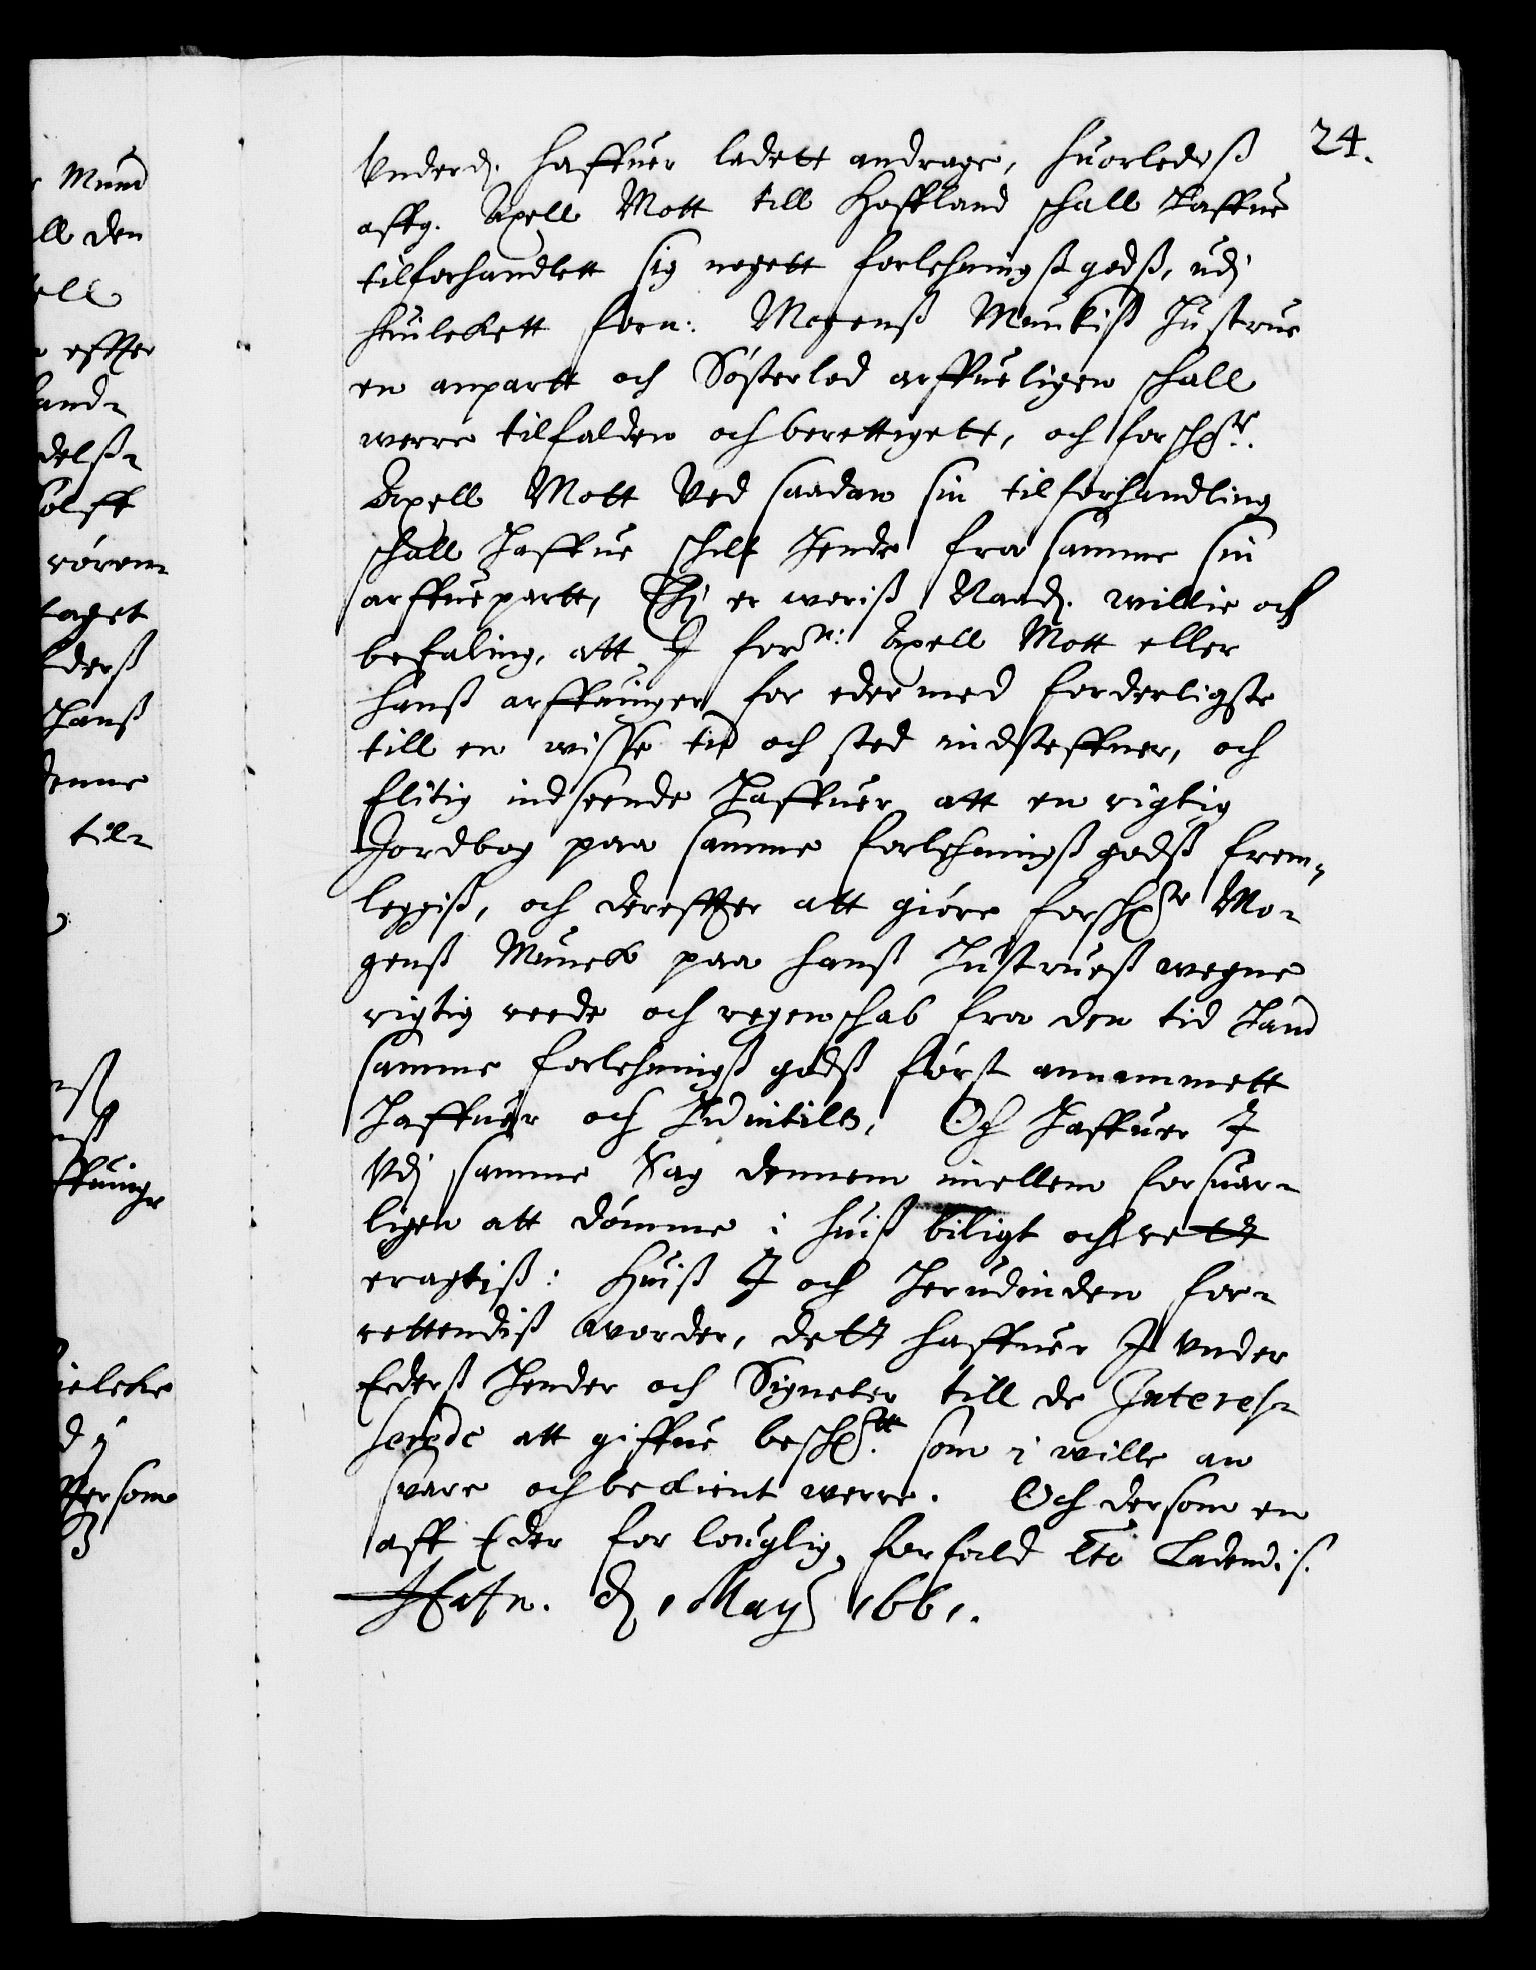 24.
Underd. haffuer ladett andrage, huorledeß
affg. Axell Mott till Hoffland schall haffue
tilforhandlett sig nogett forlehningßgodß, udj
huilckett forn: Mogenß Munckiß Hustrue
en anpartt och Søsterlod arffueligen schall
werre tilfalden och berettigett, och forsch.ne
Axell Mott Ved saadan sin tilforhandling
schall haffue schilt hende fra samme sin
arffuepartt, Thj er woriß Naad. willie och
befaling, att I forn: Axell Mott eller
hanß arffuinger for eder med forderligste
till en wisse tid och sted indsteffner, och
flitig indseende haffuer att en rigtig
Jordbog paa samme forlehningßgodß frem-
leggiß, och dereffter att giøre forsch.ne Mo-
genß Munck paa hanß Hustrueß wegne
rigtig reede och regenschab fra den tid hand
samme forlehningß godß først annammett
haffuer och hidintill, Og haffuer I
Vdj samme Sag dennem imellem forsuar-
ligen att dømme i huiß biligt och rett
eragtiß: Huiß I och herudinden for-
rettendiß worder, dett haffuer I under
Ederß Hender och Signeter till de Interes-
serede att giffue besch.tt som i wille an
svare och bekient werre. Och dersom en
aff Eder for louglig forfald etc Ladendiß.
Hafn. d. 1 Maÿ 1661.
Mund
den
effter
land-
delß-
rören
taget
hanß
denne
til-
dersom